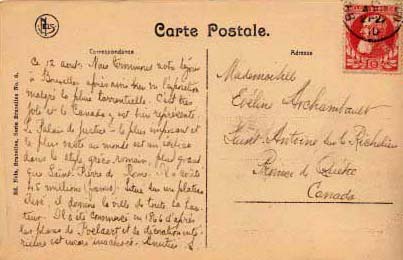 NELS
Carte Postale.
Correspondance
Adresse
Ed. Nels, Bruxelles, Série Bruxelles No.
Ce 12 août. Nous terminons notre séjour
à Bruxelles après avoir bien vu l'exposition
malgré la pluie torrentielle. C'est très
joli et le Canada y est bien représenté
Le Palais de justice - le plus imposant et
le plus vaste au monde est un édifice
dans le style gréco romain, plus grand
que Saint-Pierre de Rome. Il a coûté
45 millions (francs). Situé sur un plateau
élevé, il domine la ville de toute sa hau-
teur. Il a été commencé en 1866 d'après
les plans de Poelaert et sa décoration inté-
rieure est encore inachevée. Amitiés
Mademoiselle
Eveline Archambault
Saint-Antoine sur le Richelieu
Province de Québec
Canada
10